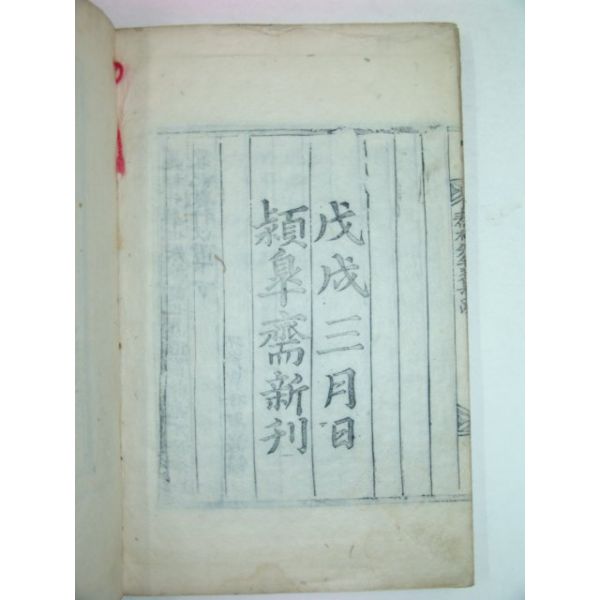 戊戌三月日
頴皐齋新刊